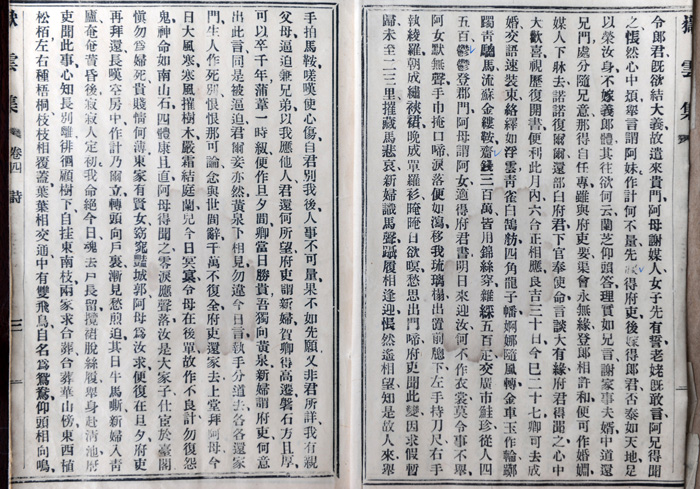 嶽雲集
令郎君旣欲結大義故遣來貴門阿母謝媒人女子先有誓老姥旣敢言阿兄得聞
之悵然心中煩舉言謂阿妹作計何不量先嫁得府吏後嫁得郎君否泰如天地足
以榮汝身不嫁義郎體其往欲何云蘭芝仰頭答理實如兄言謝家事夫壻中道還
兄門處分隨兄意那得自任專雖與府吏要渠會永無緣登卽相許和便可作婚姻
媒人下牀去諾諾復爾爾還部白府君下官奉使命言談大有緣府君得聞之心中
大歡喜視歷復開書便利此月內六合正相應良吉三十日今巳二十七卿可去成
婚交語速裝束絡繹如浮雲靑雀白鵠舫四角龍子幡婀娜隨風轉金車玉作輪躑
躅靑驄馬流蘇金縷鞍齎錢三百萬皆用錦絲穿雜綵五百疋交廣市鮭珍從人四
五百鬱鬱登郡門阿母謂阿女適得府君書明日來迎汝何不作衣裳莫令事不舉
阿女默無聲手巾掩口啼淚落便如瀉移我琉璃榻出置前牕下左手持刀尺右手
執綾羅朝成繡裌裙晚成單羅衫晻晻日欲暝愁思出門啼府吏聞此變因求假暫
歸未至二三里摧藏馬悲哀新婦識馬聲躡履相逢迎悵然遙相望知是故人來舉
手拍馬鞍嗟嘆使心傷自君別我後人事不可量果不如先願又非君所詳我有親
父母逼迫兼兄弟以我應他人君還何所望府吏謂新婦賀卿得高遷磐石方且厚
可以卒千年蒲葦一時紉便作旦夕間卿當日勝貴吾獨向黃泉新婦謂府吏何意
出此言同是被逼迫君爾妾亦然黃泉下相見勿違今日言執手分道去各各還家
門生人作死別恨恨那可論念與世間辭千萬不復全府吏還家去上堂拜阿母今
日大風寒寒風摧樹木嚴霜結庭蘭兒今日冥冥令母在後單故作不良計勿復怨
鬼神命如南山石四體康且直阿母得聞之零淚應聲落汝是大家子仕宦於臺閣
愼勿爲婦死貴賤情何薄東家有賢女窈窕豔城郭阿母爲汝求便復在旦夕府吏
再拜還長嘆空房中作計乃爾立轉頭向戶裏漸見愁煎迫其日牛馬嘶新婦入靑
廬奄奄黃昏後寂寂人定初我命絕今日魂去尸長留攬裙脫絲履舉身赴淸池府
吏聞此事心知長別離徘徊顧樹下自挂東南枝兩家求合葬合葬華山傍東西植
松栢左右種梧桐枝枝相覆蓋葉葉相交通中有雙飛鳥自名爲鴛鴦仰頭相向鳴
嶽雲集 卷四 詩 三